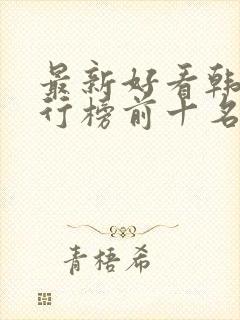 最新好看韩
行榜前十名
青梧希